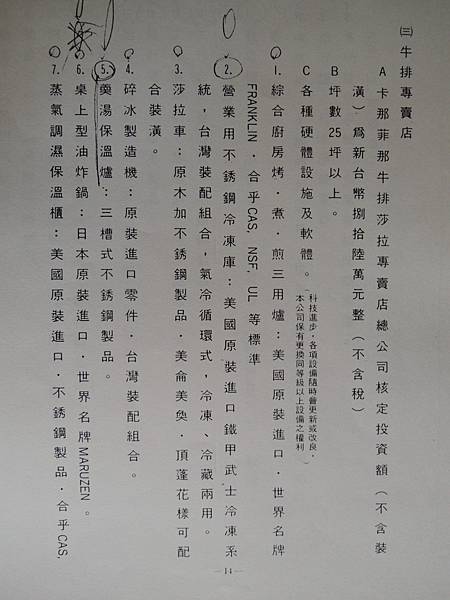 ㈢牛排專賣店
A卡那菲那牛排莎拉專賣店總公司核定投資額(不含裝
潢)爲新台幣捌拾陸萬元整(不含稅)
B坪數25坪以上。
C各種硬體設施及軟體。(科技進步,各項設備隨時會更新或改良,
本公司保有更換同等級以上設備之權利)
1.綜合廚房烤.煮.煎三用爐:美國原裝進口.世界名牌
FRANKLIN.合乎CAS, NSF, UL等標準
2.營業用不銹鋼冷凍庫:美國原裝進口鐵甲武士冷凍系
統,台灣裝配組合,氣冷循環式,冷凍、冷藏兩用。
3.莎拉車:原木加不銹鋼製品.美侖美奐.頂蓬花樣可配
合裝潢。
4.碎冰製造機:原裝進口零件.台灣裝配組合。
5.羮湯保溫爐:三槽式不銹鋼製品。
6.桌上型油炸鍋:日本原裝進口.世界名牌MARUZEN。
7.蒸氣調濕保溫櫃:美國原裝進口.不銹鋼製品.合乎CAS,
—14—